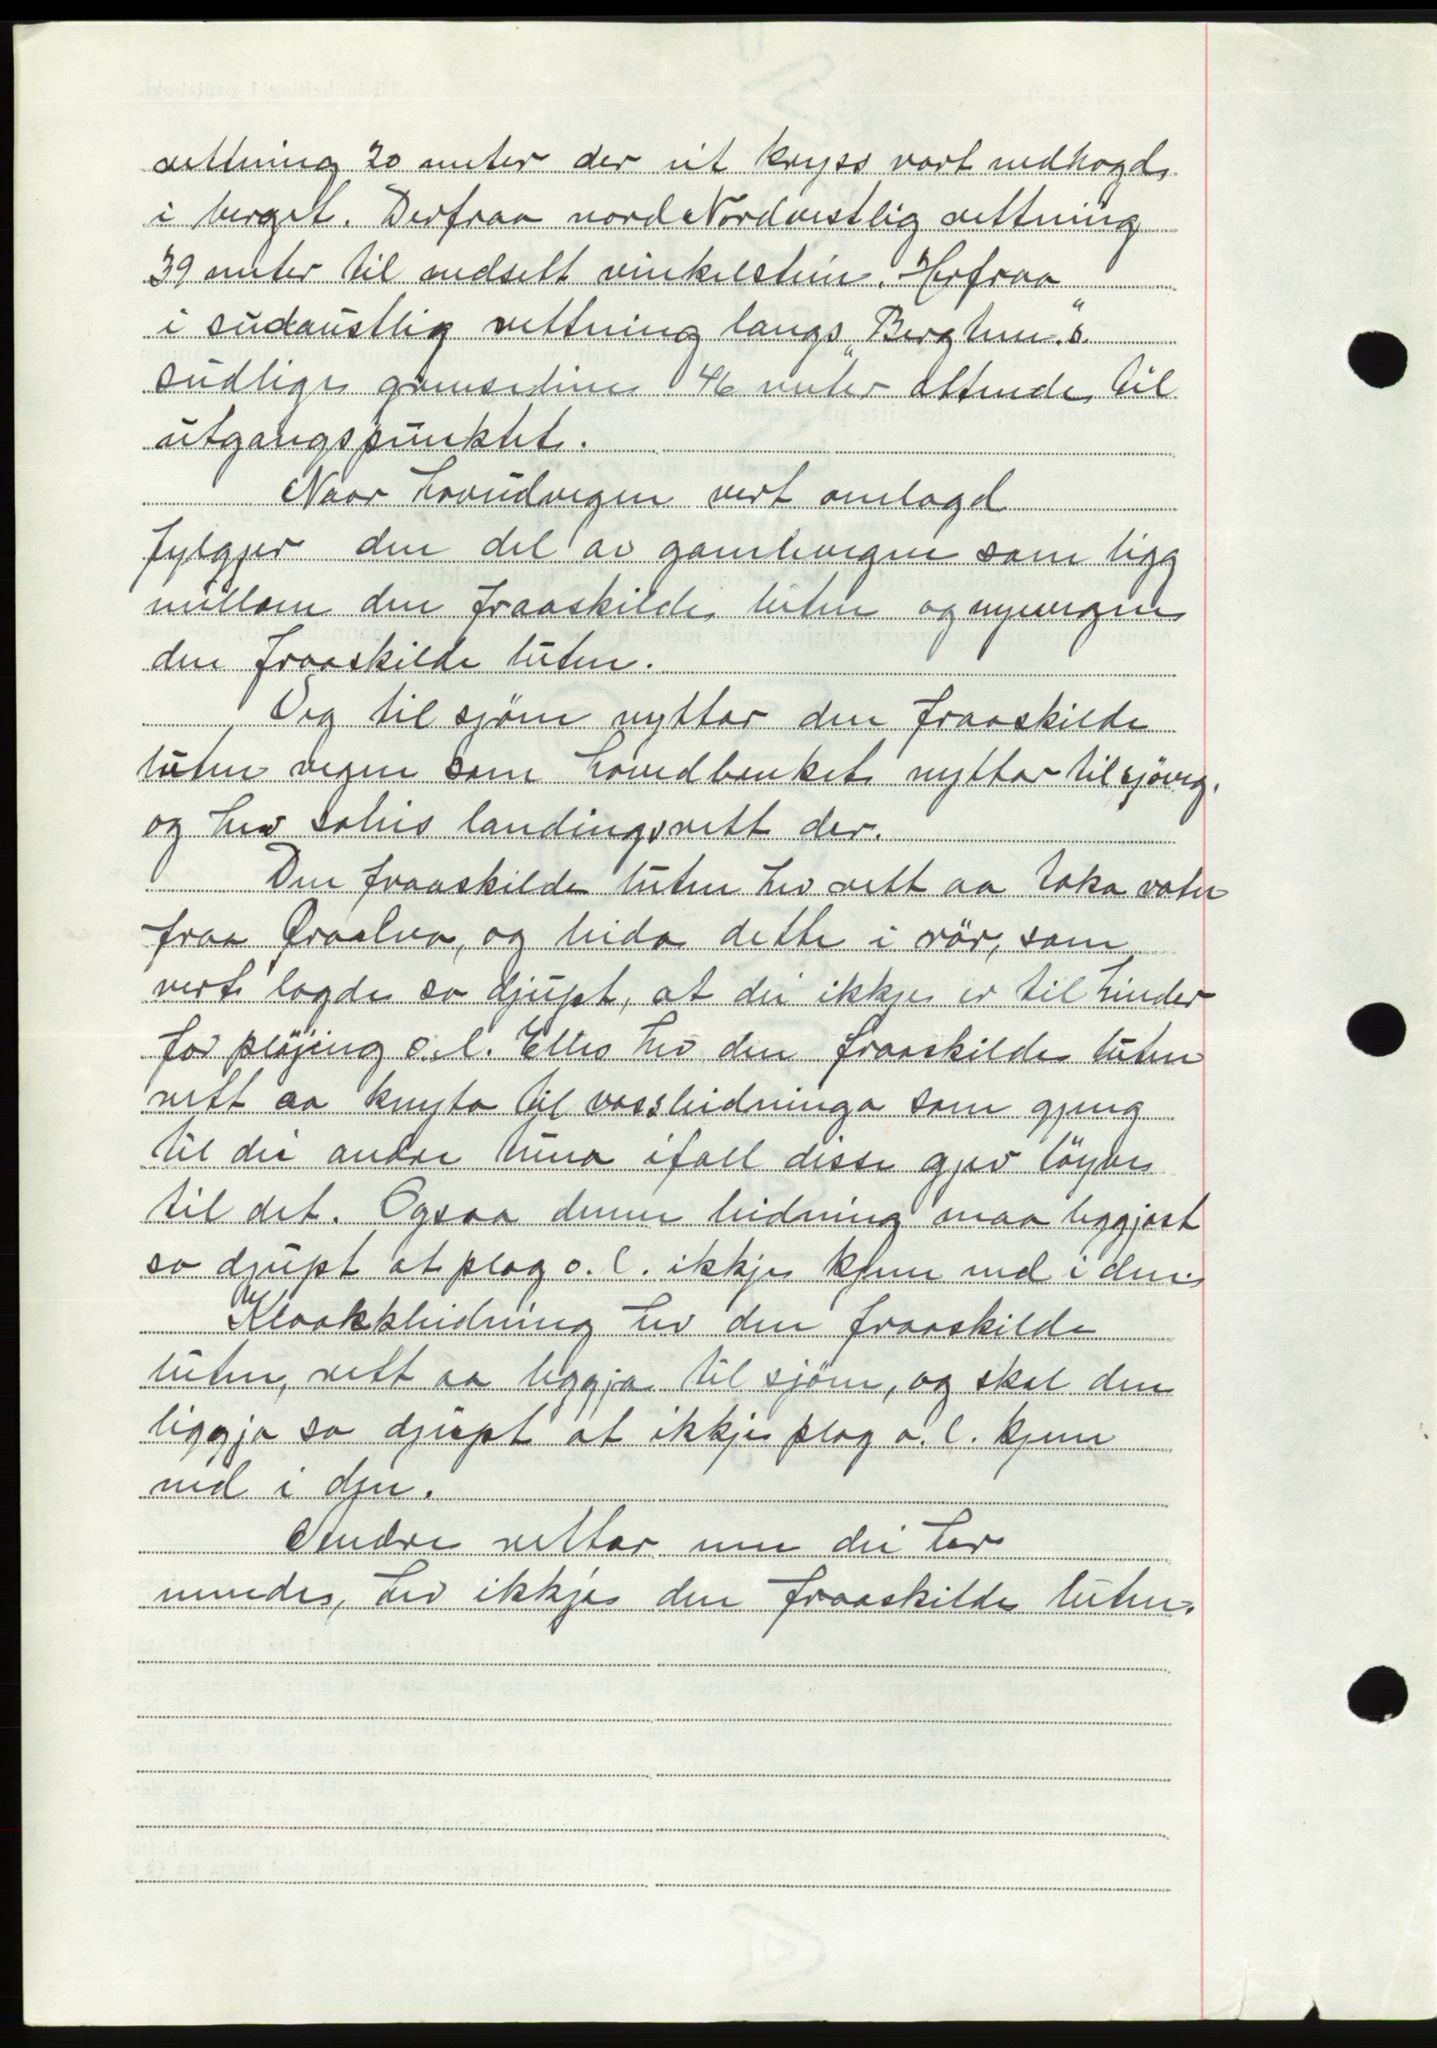 rettning 20 meter der eit kryss vart nedhogd
i berget. Derfraa nord Nordvestlig rettning
39 meter til nedsett vinkelstein. Herfraa
i sudaustlig rettning langs „Bergtun"s
sudlige grenseline 46 meter attende til
utgangspunktet.
Naar hovudvegen vert omlagd
fylgjer den del av gamlevegen som ligg
millom den fraaskilde luten og nyevegen
den fraaskilde luten.
Veg til sjöen nyttar den fraaskilde
luten vegen som hovedbruket nyttar til sjöveg.
og hev soleis landingsrett der.
Den fraaskilde luten hev rett aa taka vatn
fraa Øraelva, og leida dette i rör, som
vert lagde so djupt, at dei ikkje er til hinder
for plöying o.l. Elles hev den fraaskilde luten
rett aa knyta til vassleidninga som gjeng
til dei andre tuna ifall disse gjev löyve
til det. Ogsaa denne leidning maa leggjast
so djupt at plog o.l. ikkje kjem ned i den.
Kloakkleidning hev den fraaskilde
luten, rett aa leggja til sjöen, og skal den
liggja so djupt at ikkje plog o.l. kjem
ned i den.
Andre rettar enn dei her
nemnde, hev ikkje den fraaskilde luten.